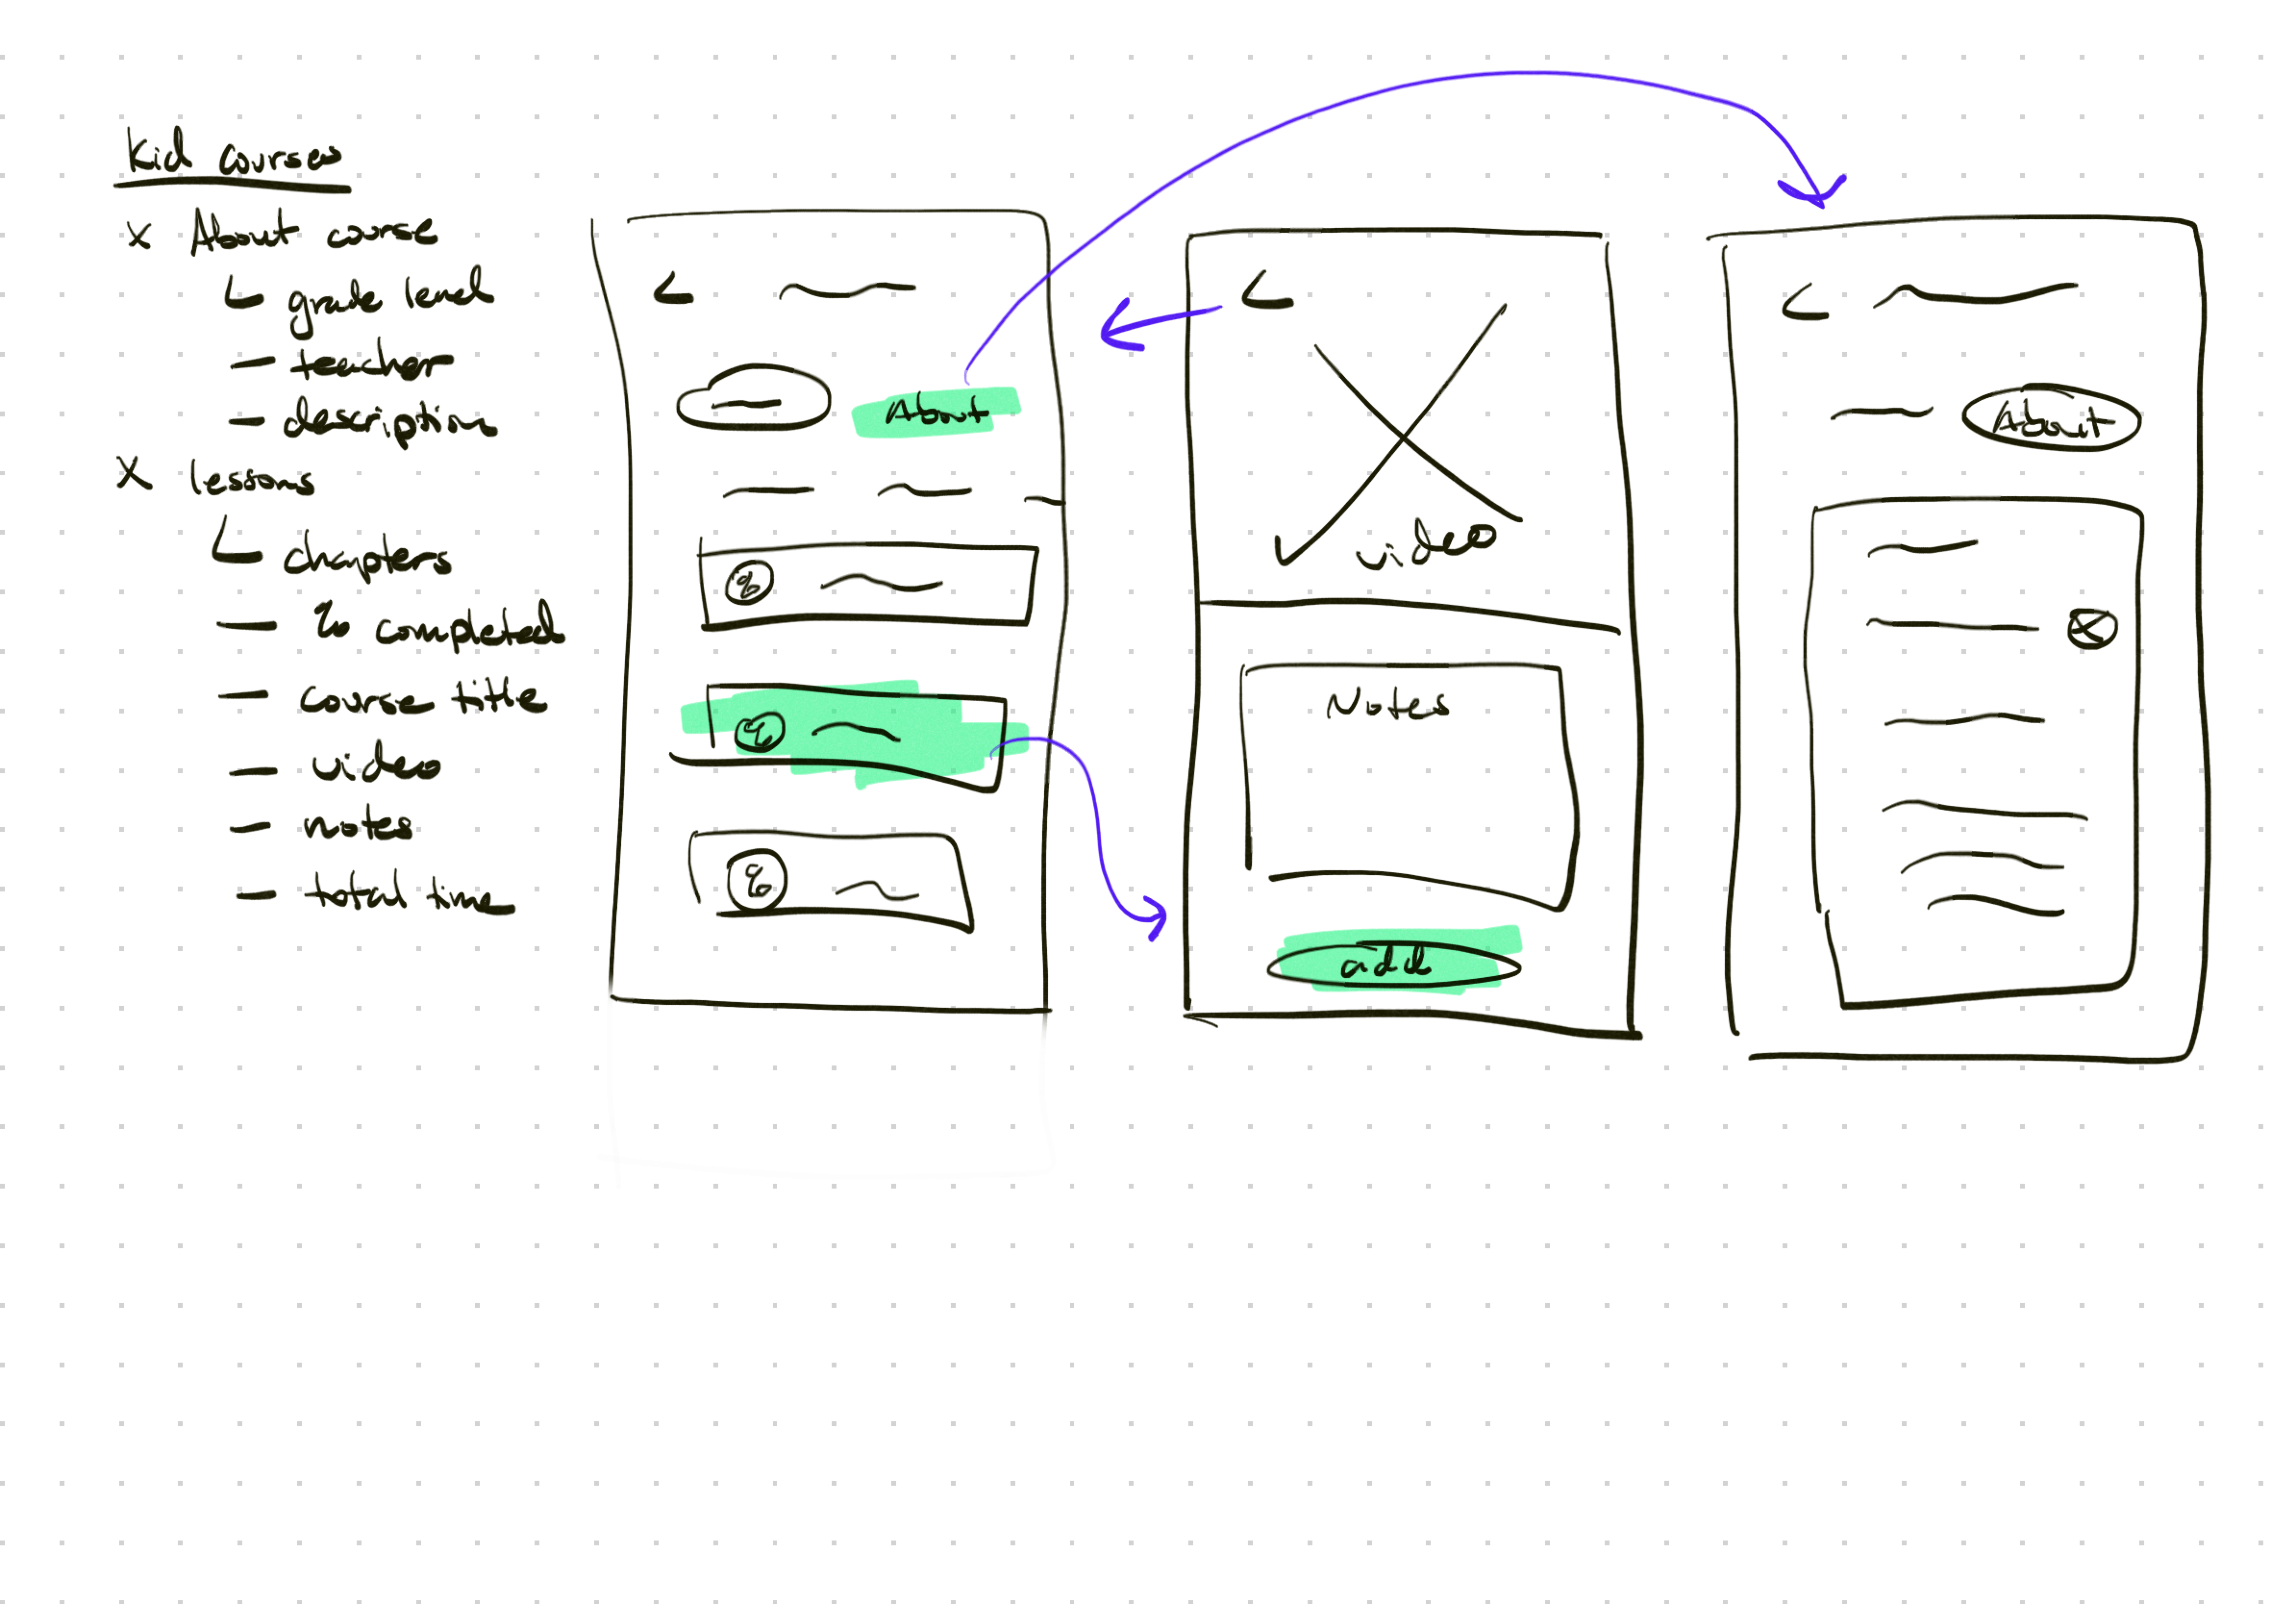 Kid courses
x About course
grade level
— teacher
— description
x lessons
chapters
— % completed
— course title
— video
— notes
— total time
About
%
%
%
video
Notes
add
About